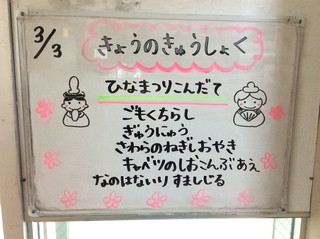 3/3
きょうのきゅうしょく
ひなまつりこんだて
ごもくちらし
ぎゅうにゅう
さわらのねぎしおやき
キャベツのしおこんぶあえ
なのはないりすましじる